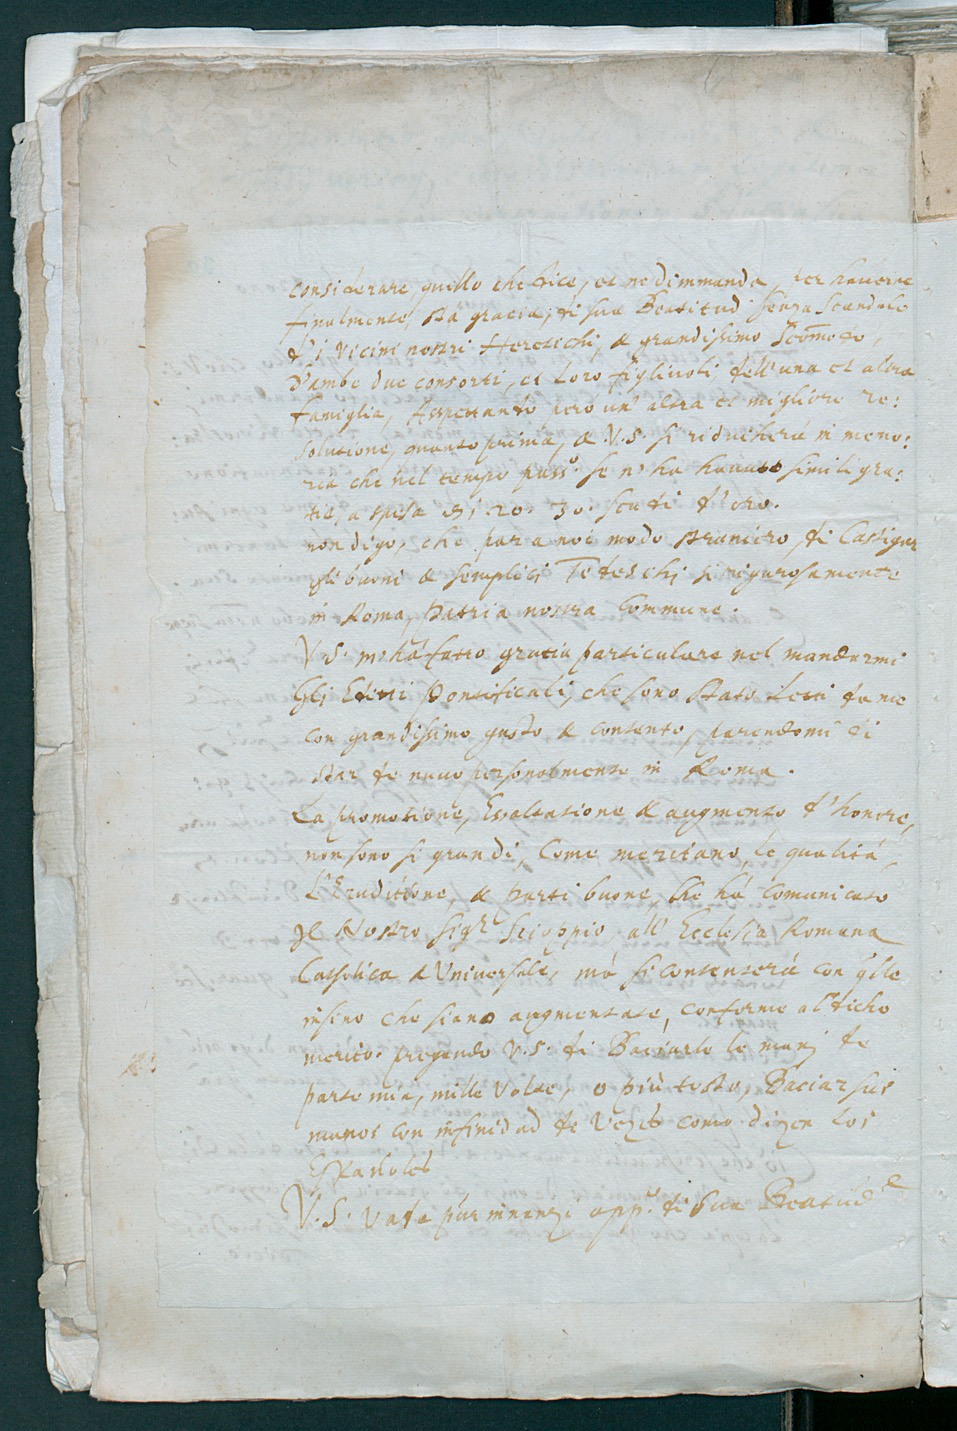 considerare, quello che dice, et ne dimmanda, per haverne
finalmente, sta gracia, di sua Beatitud senza scandalo
d'i vicini nostri Heretichi, & grandissimo scomodo,
d'ambe due consorti, et loro figlivoli dell'una et altra
famiglia, Aspettando pero un' altra et migliore re:
solutione, quanto prima, & V.S. si riducherà in memo:
ria che nel tempo pass.o se n'ha havuto simili gra:
tie, a spesa di 20. 30. scudi d'oro.
non digo, che par a noi modo straniero, di Castigar
gli buoni & semplici Tedeschi si rigurosamente
in Roma, Patria nostra commune.
V.S. m'ha fatto gracia particulare nel mandarmi
Gli Editti Pontificali, che sono stato letti da me
con grandissimo gusto & contento, parendomi di
star de nuuo personalmente in Roma.
La promotione, Exaltatione & augmento d'honore,
non sono si grandi, come meritano, le qualità,
L'Erudittione, & parti buone, che hà comunicato
Il Nostro sig.r Scioppio, all' Ecclesia Romana
Catholica & Universale, mà si contenterà con q̃lle
insino che siano augmentate, conforme al dicho
merito. pregando V.S. di Baciarle le mani de
parte mia, mille volte, o più tosto, Baciar sus
manos con infinidad de vezes como dizen los
Españoles
V.S. vada pur innanzi app.o di sua Beatud.e